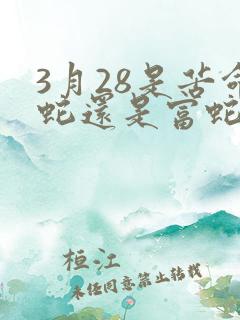 3月28是苦命
蛇還是富蛇
桓江
未任同意禁止转载